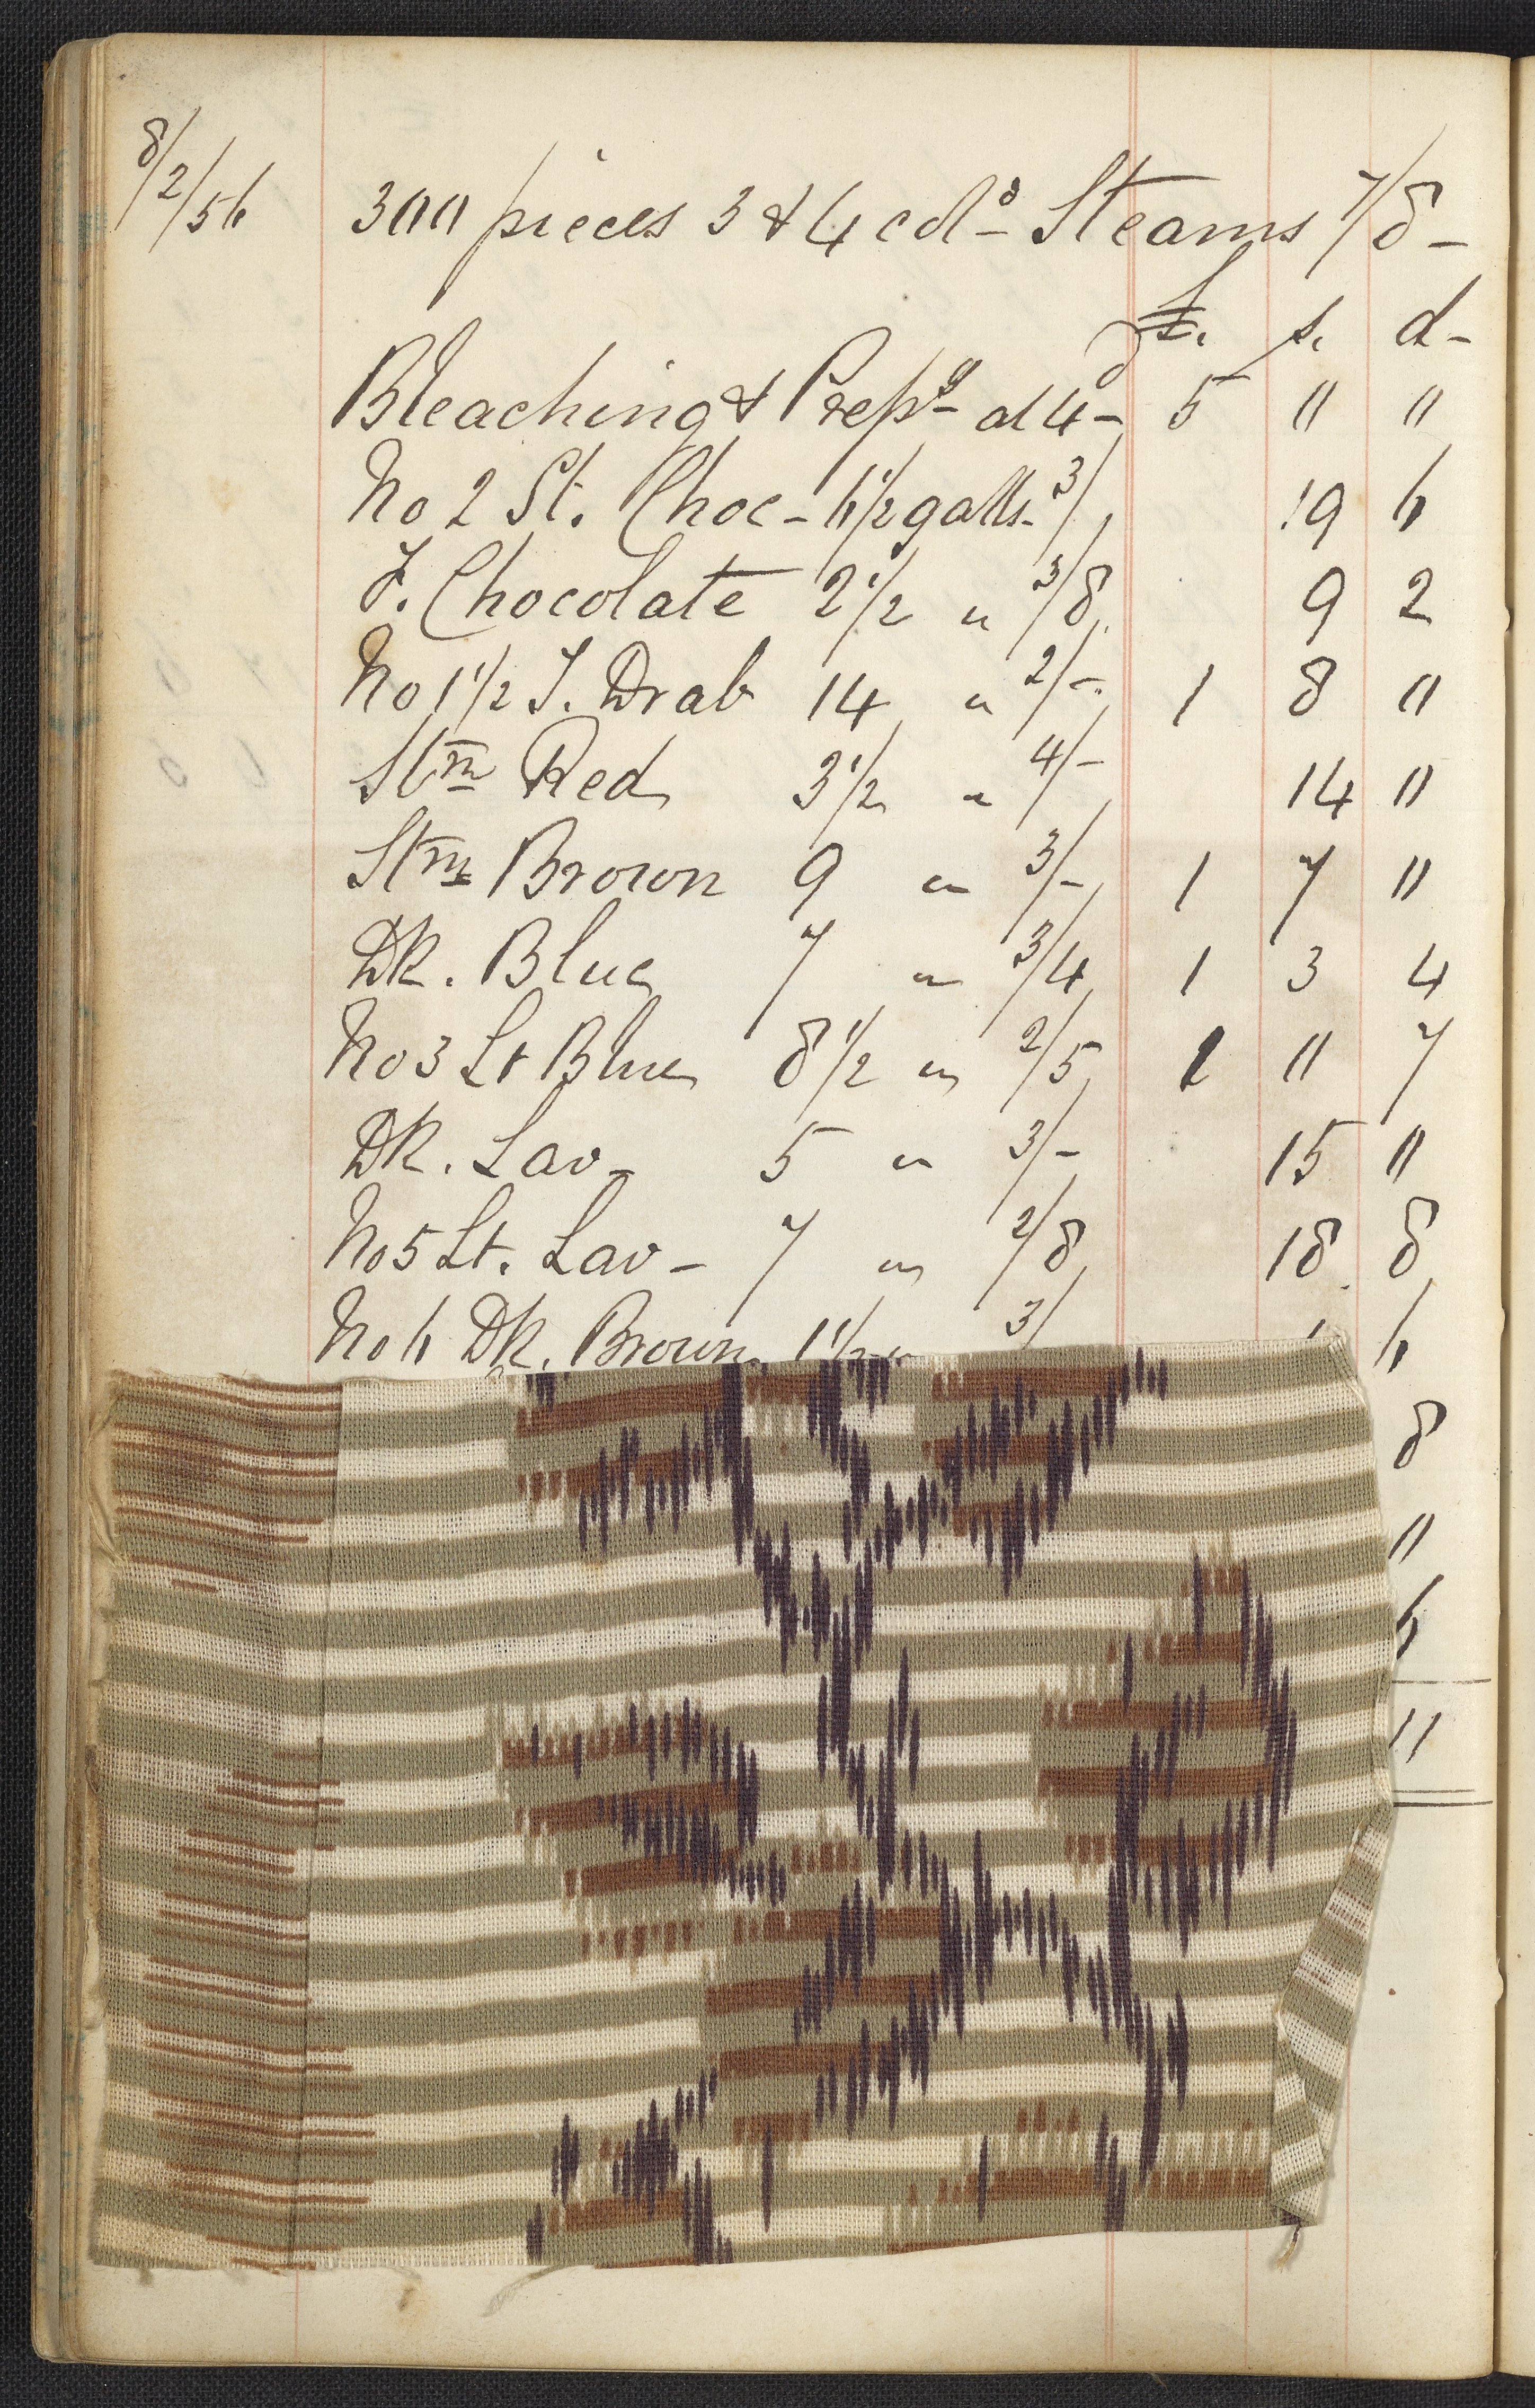 8/2/56 300 pieces 3 & 4 cd.s Steams 7/8 -
£. s. d -
Bleaching & Prepg - at 4 - 5 " "
No 2 St. Choc - 6 1/2 galls. 3/ 19 6
F. Chocolate 2 1/2 " 3/8 9 2
No 1 1/2 F. Drab 14 " 2/- 1 8 "
Stm Red 3 1/2 " 4/- 14 "
Stm Brown 9 " 3/- 1 7 "
Dk. Blue 7 " 3/4 1 3 4
No 3 Lt Blue 8 1/2 " 2/5 1 " 7
Dk. Lav - 5 " 3/- 15 "
No 5 Lt. Lav - 7 " 2/8 18 8
No 6 Dk. Brown 1 1/2 " 3/ 6
8
"
6
11